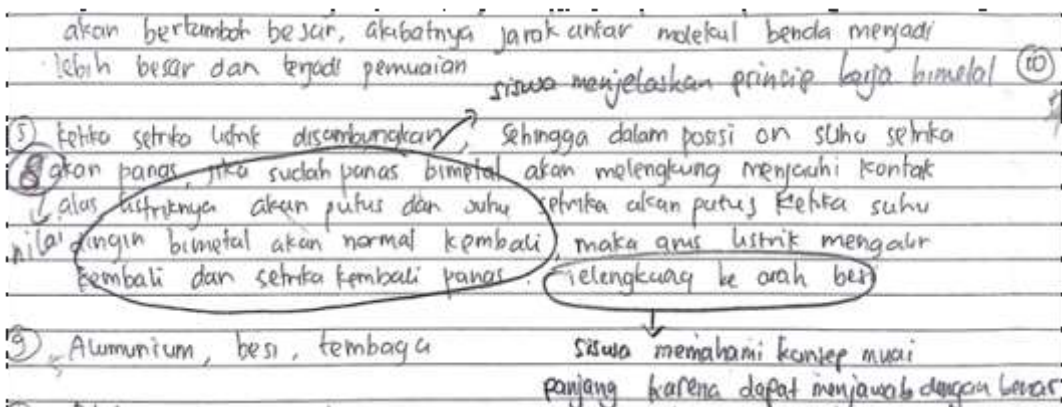 akan bertamboh besar, akibatnya jarak antar molekul benda menjadi
lebih besar dan terjadi pemuaian
siswa menjelaskan prinsip kerja bimetal 10
5 ketika setrika listrik disambungkan, sehingga dalam posisi on suhu setrika
8 akan panas, jika sudah panas bimetal akan melengkung menjauhi kontak
alas listriknya akan putus dan suhu setrika akan putus ketika suhu
nilai dingin bimetal akan normal kembali, maka arus listrik mengalir
kembali dan setrika kembali panas. melengkung ke arah besi
9 Alumunium, besi, tembaga
siswa memahami konsep muai
panjang karena dapat menjawab dengan benar